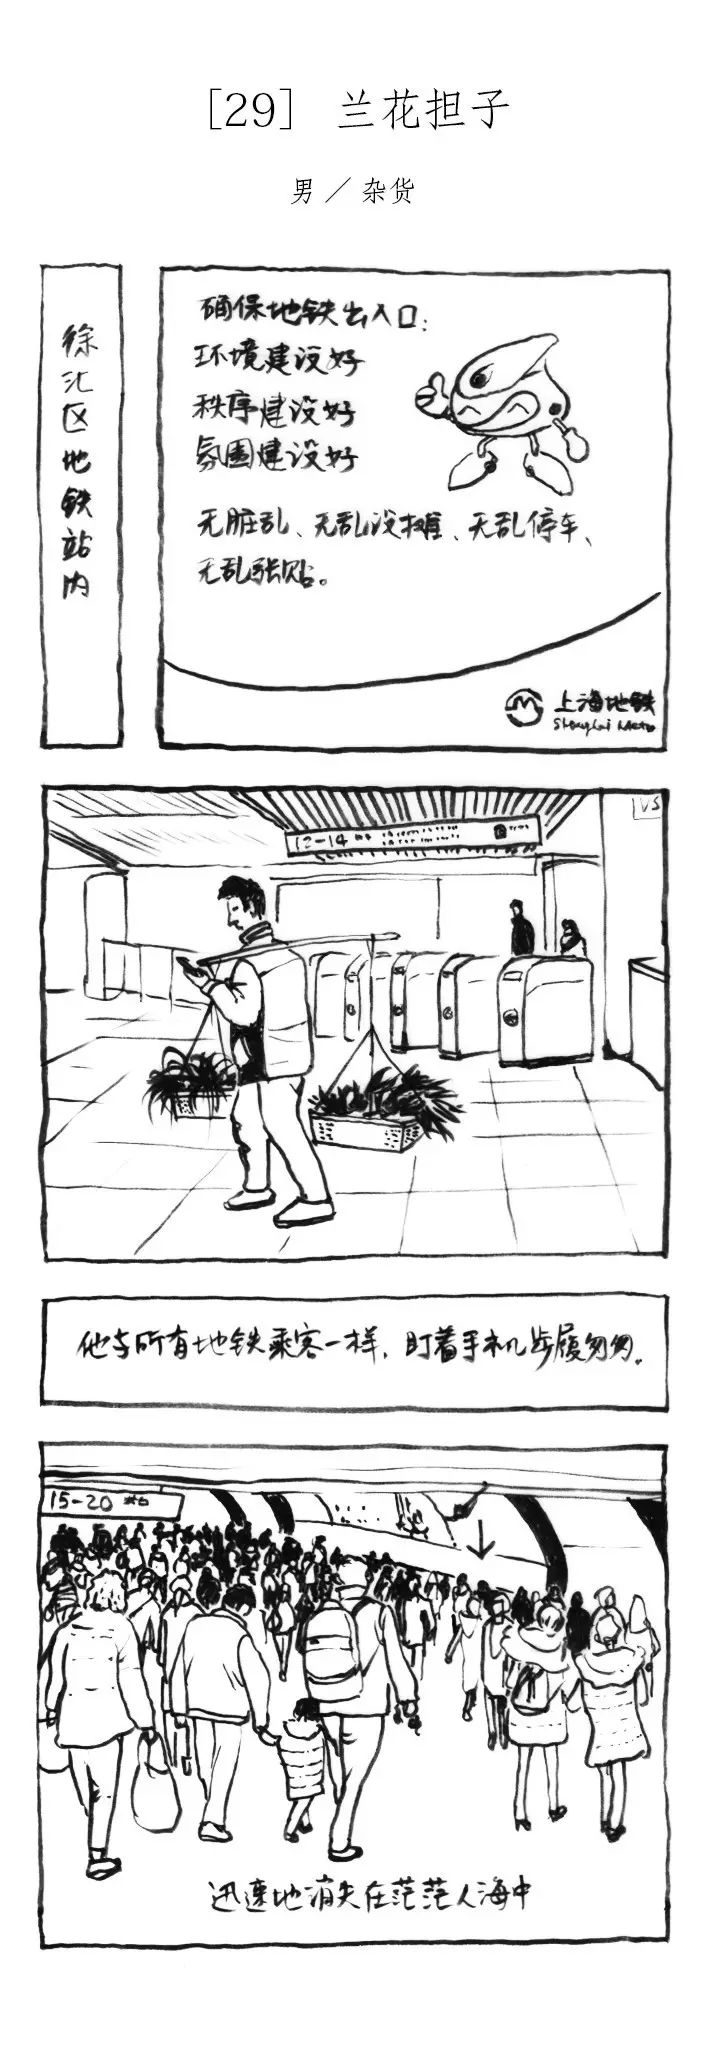 [29] 兰花担子
男 / 杂货
徐汇区地铁站内
确保地铁出入口:
环境建设好
秩序建设好
氛围建设好
无脏乱、无乱设摊、无乱停车、
无乱张贴。
上海地铁
Shanghai Metro
12-14
VS
他与所有地铁乘客一样,盯着手机步履匆匆。
15-20
迅速地消失在茫茫人海中